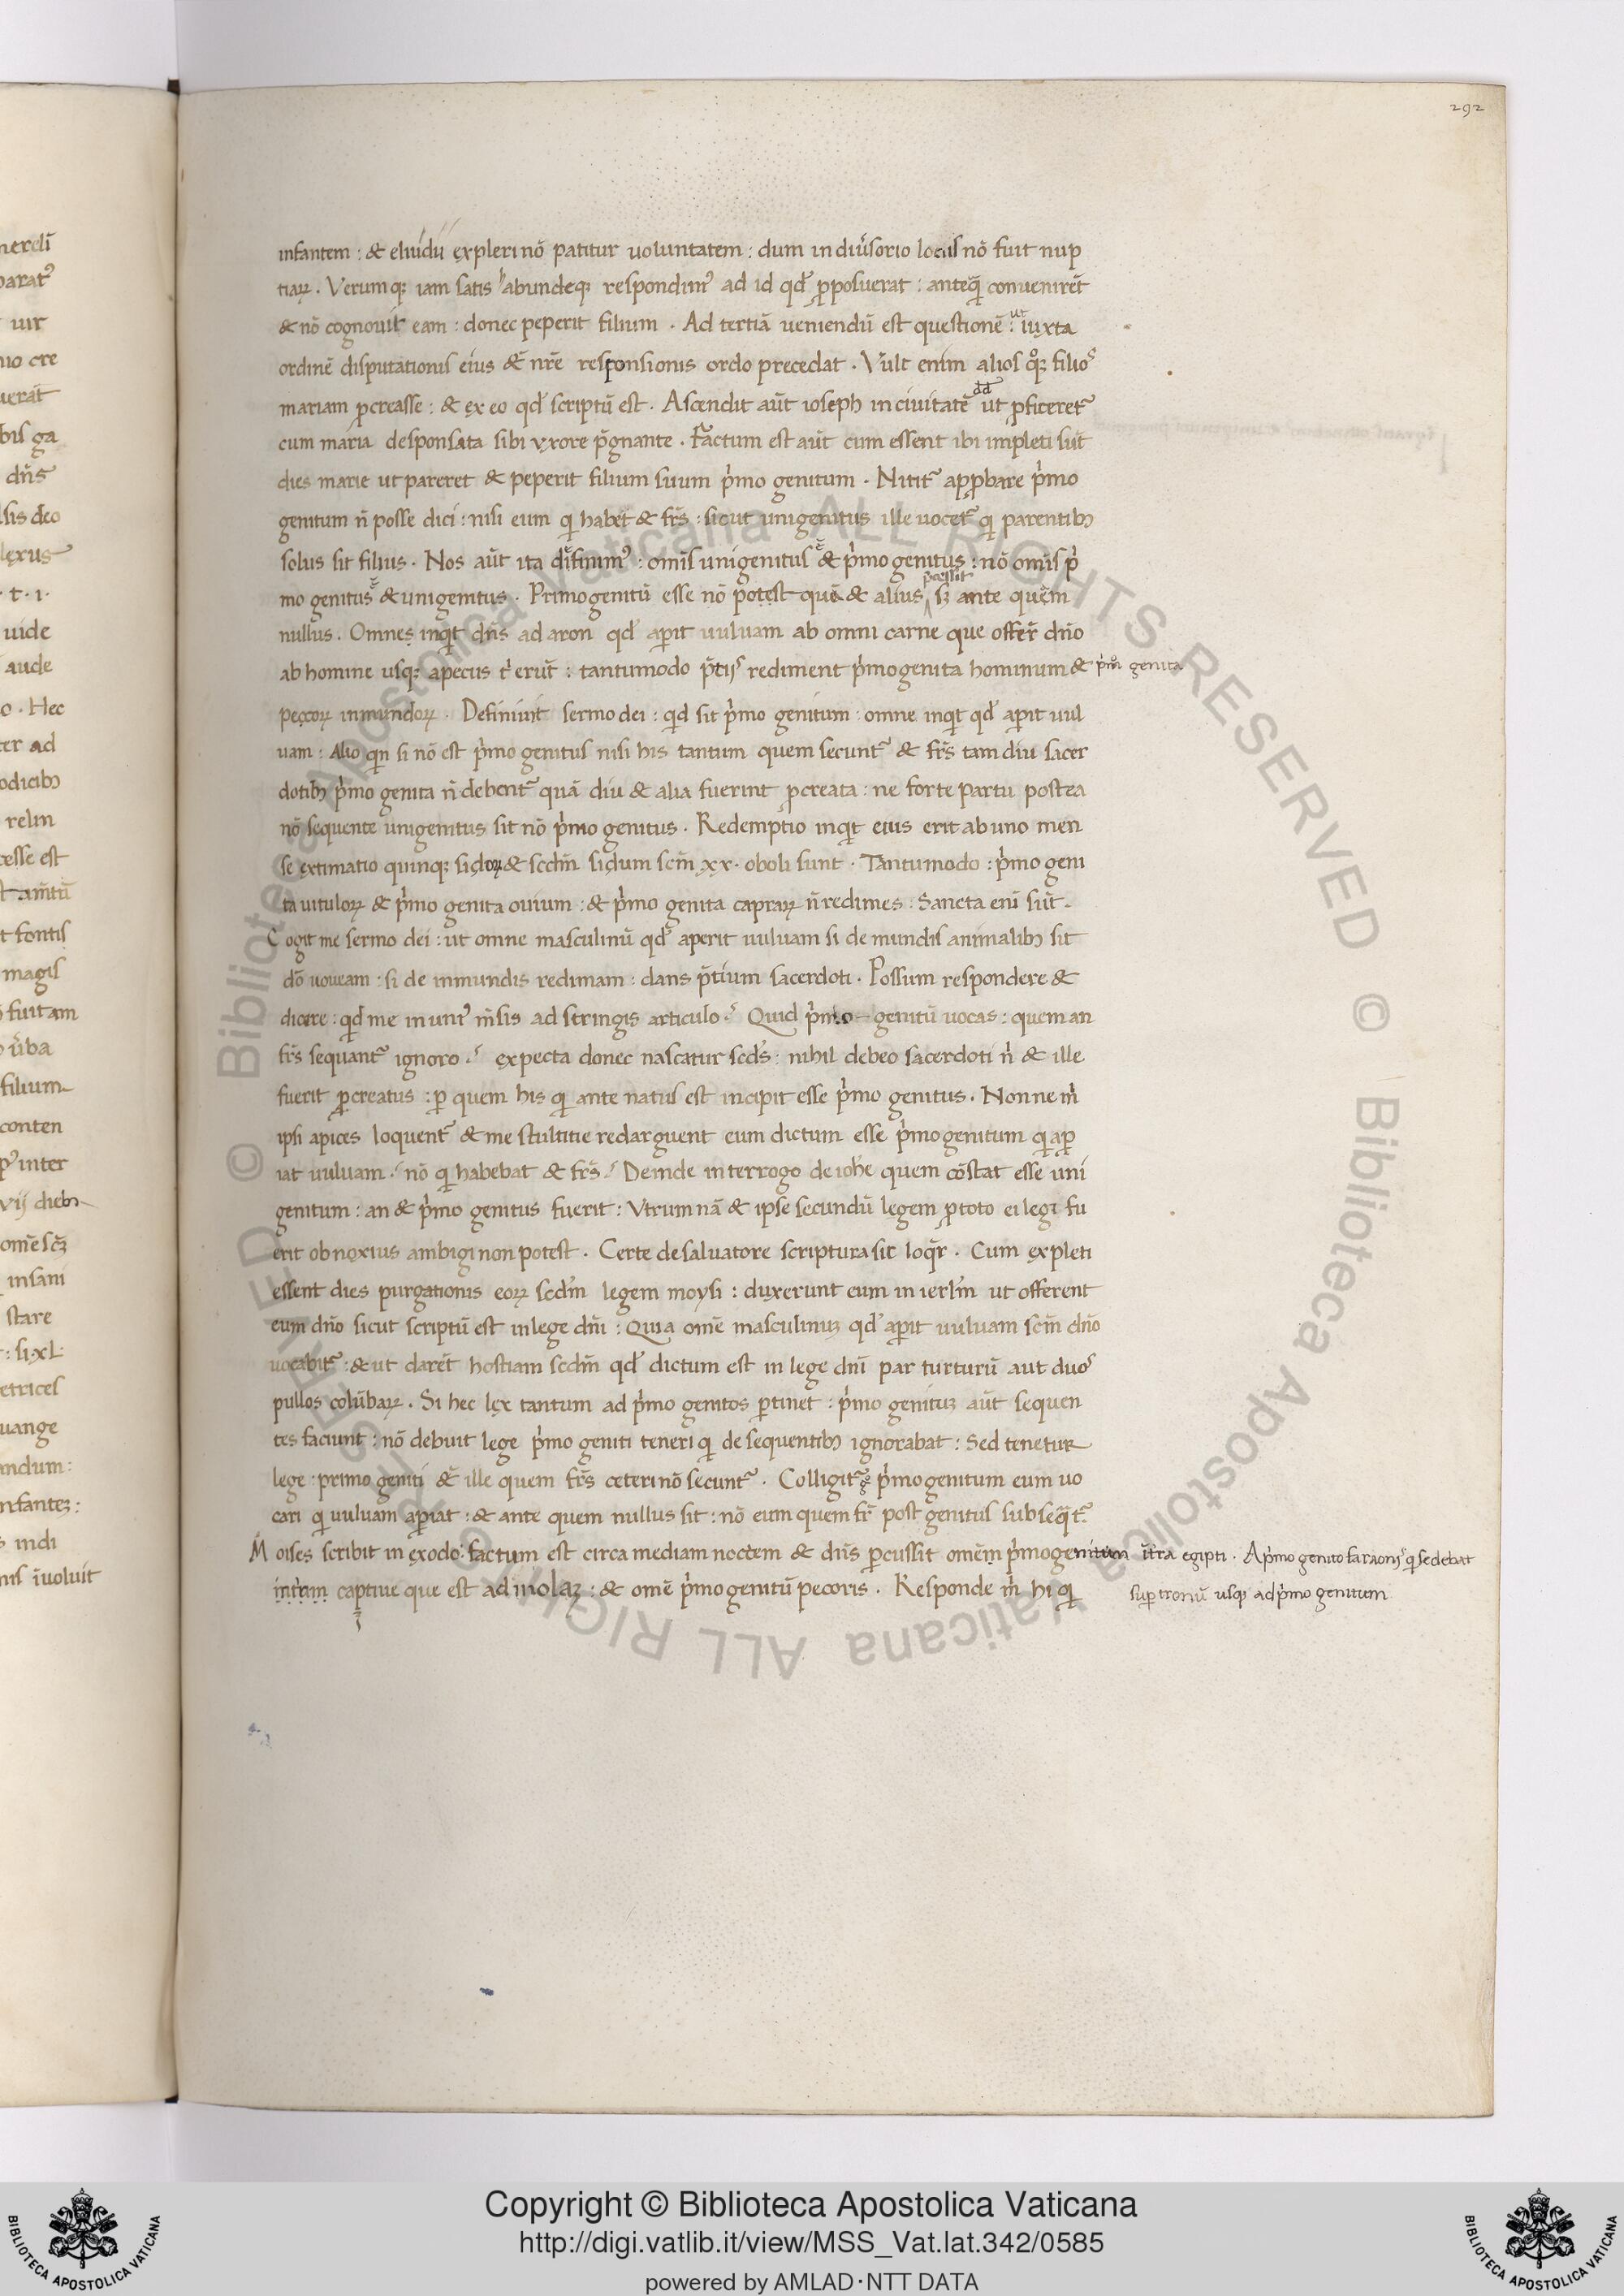 292
infantem : & eluidii expleri nō patitur uoluntatem : dum in diūsorio locus nō fuit nup
tiaꝝ . Verumqꝫ iam satis habundeqꝫ respondimꝰ ad id qđ ꝓposuerat : anteq̄ conuenirēt
& nō cognouit eam : donec peperit filium . Ad tertiā ueniendū est questionē : ut iuxta
ordinē disputationis eius & nr̄e responsionis ordo precedat . Vult enim alios qͦqꝫ filios
mariam ꝓcreasse : & ex eo qđ scriptū est . Ascendit aūt ioseph in ciuitatē dd̄ ut ꝓficeret᷑
cum maria desponsata sibi uxore p̄gnante . Factum est aūt cum essent ibi impleti sūt
dies marie ut pareret & peperit filium suum pͥmo genitum . Nitit᷑ apꝓbare pͥmo
genitum n̄ posse dici : nisi eum qͥ habet & fr̄s : sicut unigenitus ille uocet᷑ qͥ parentibꝫ
solus sit filius . Nos aūt ita difinimꝰ : omīs unigenitus ē & pͥmo genitus : nō omīs pͥ
mo genitus ē & unigenitus . Primogenitū esse nō potest quē & alius p̄cessit sꝫ ante quem
nullus . Omnes inqͥt dn̄s ad aron qđ aꝑit uuluam ab omni carne que offer̄t dn̄o
ab homine usqꝫ apecus tͥ erūt : tantumodo p̄tijs rediment pͥmogenita hominum & pͥmo genita
pecoꝝ inmundoꝝ . Definiuit sermo dei : qͥd sit pͥmo genitum : omne inqͥt qđ aꝑit uul
uam : Alio qͥn si nō est pͥmo genitus nisi his tantum quem secunt᷑ & fr̄s tam diu sacer
dotibꝫ pͥmo genita n̄ debent᷑ quā diu & alia fuerint ꝓcreata : ne forte partu postea
nō sequente unigenitus sit nō pͥmo genitus . Redemptio inqͥt eius erit ab uno men
se extimatio quinqꝫ sicloꝝ & scdm̄ siclum sc̄m xx . oboli sunt . Tantumodo : pͥmo geni
ta uituloꝝ & pͥmo genita ouium : & pͥmo genita capraꝝ n̄ redimes : Sancta enī sūt .
Cogit me sermo dei : ut omne masculinū qđ aperit uuluam si de mundis animalibꝫ sit
dō uoueam : si de inmundis redimam : dans p̄tium sacerdoti . Possum respondere &
dicere : qͥd me in uniꝰ m̄sis ad stringis articulo ? Quid pͥmo genitū uocas : quem an
fr̄s sequant᷑ ignoro ? expecta donec nascatur scd̄s : nihil debeo sacerdoti n̄ & ille
fuerit ꝓcreatus : ꝑ quem his qͥ ante natus est incipit esse pͥmo genitus . Nonne mͥ
ipsi apices loquent᷑ & me stultitie redarguent eum dictum esse pͥmogenitum qͥ aꝑ
iat uuluam ? nō qͥ habebat & fr̄s ? Deinde interrogo de ioh̄e quem cōstat esse uni
genitum : an & pͥmo genitus fuerit : Vtrum nā & ipse secundū legem ꝓ toto ei legi fu
erit obnoxius ambigi non potest . Certe de saluatore scriptura sic loqͥr . Cum expleti
essent dies purgationis eoꝝ scdm̄ legem moysi : duxerunt eum in ierlm̄ ut offerent
eum dn̄o sicut scriptū est in lege dn̄i : Quia omē masculinuꝫ qđ aꝑit uuluam sc̄m dn̄o
uocabit᷑ : & ut darēt hostiam scdm̄ qđ dictum est in lege dn̄i par turturū aut duos
pullos colūbaꝝ . Si hec lex tantum ad pͥmo genitos ꝑtinet : pͥmo genituꝫ aūt sequen
tes faciunt : nō debuit lege pͥmo geniti teneri qͥ de sequentibꝫ ignorabat : Sed tenetur
lege : primo geniti & ille quem fr̄s ceteri nō secunt᷑ . Colligit᷑ pͥmo genitum eum uo
cari qͥ uuluam aꝑiat : & ante quem nullus sit : nō eum quem fr̄ post genitus subseqͥt᷑
Moises scribit in exodo : factum est circa mediam noctem & dn̄s ꝑcussit omēm pͥmogenitum ī t̄ra egipti . A pͥmo genito faraonis qͥ sedebat
suꝑ tronū usqꝫ ad pͥmo genitum
captiue que est ad molaꝫ : & omē pͥmogenitū pecoris . Responde mͥ hi qͥ
Copyright © Biblioteca Apostolica Vaticana
http://digi.vatlib.it/view/MSS_Vat.lat.342/0585
powered by AMLAD·NTT DATA
BIBLIOTECA APOSTOLICA VATICANA
BIBLIOTECA APOSTOLICA VATICANA
© Biblioteca Apostolica Vaticana ALL RIGHTS RESERVED © Biblioteca Apostolica Vaticana ALL RIGHTS RESERVED